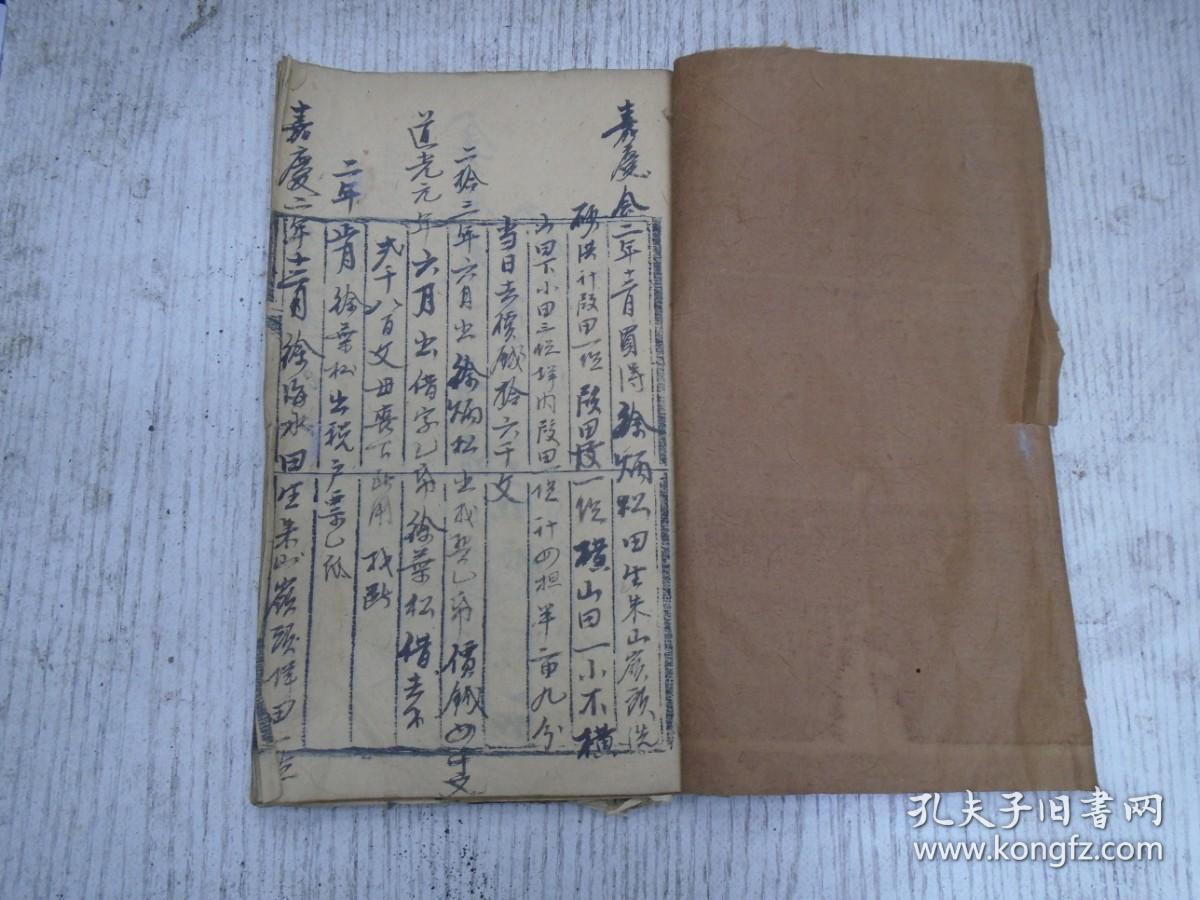 嘉慶念二年十一月買得徐炳松田坐朱山嶺頭洗
硬洪计段田一坵 段田墢一坵 横山田一小不横
山田下小田三坵垟内段田一坵计四担半亩九分
当日去價錢拾六千文
二拾三年六月出徐炳松出找契乙帋價錢四千文
道光元年六月出借字乙帋徐葉松借去不
弍千八百文母喪 用找断
二年 月徐葉松出税户票乙纸
嘉慶二年十二月徐海水田坐朱山嶺頭 田一坵
孔夫子旧书网
www.kongfz.com